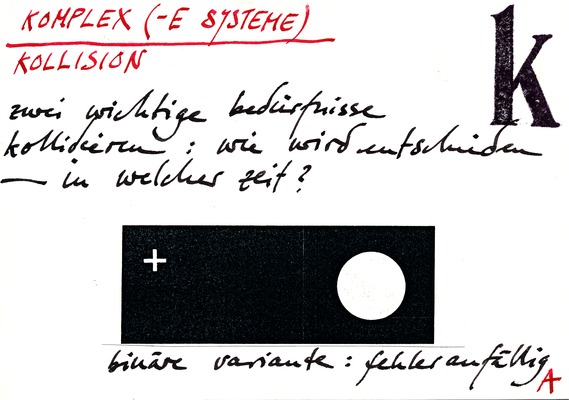 KOMPLEX (-E SYSTEME)
KOLLISION
k
zwei wichtige bedürfnisse
kollidieren : wie wird entschieden
— in welcher zeit?
+
binäre variante : fehleranfällig
A